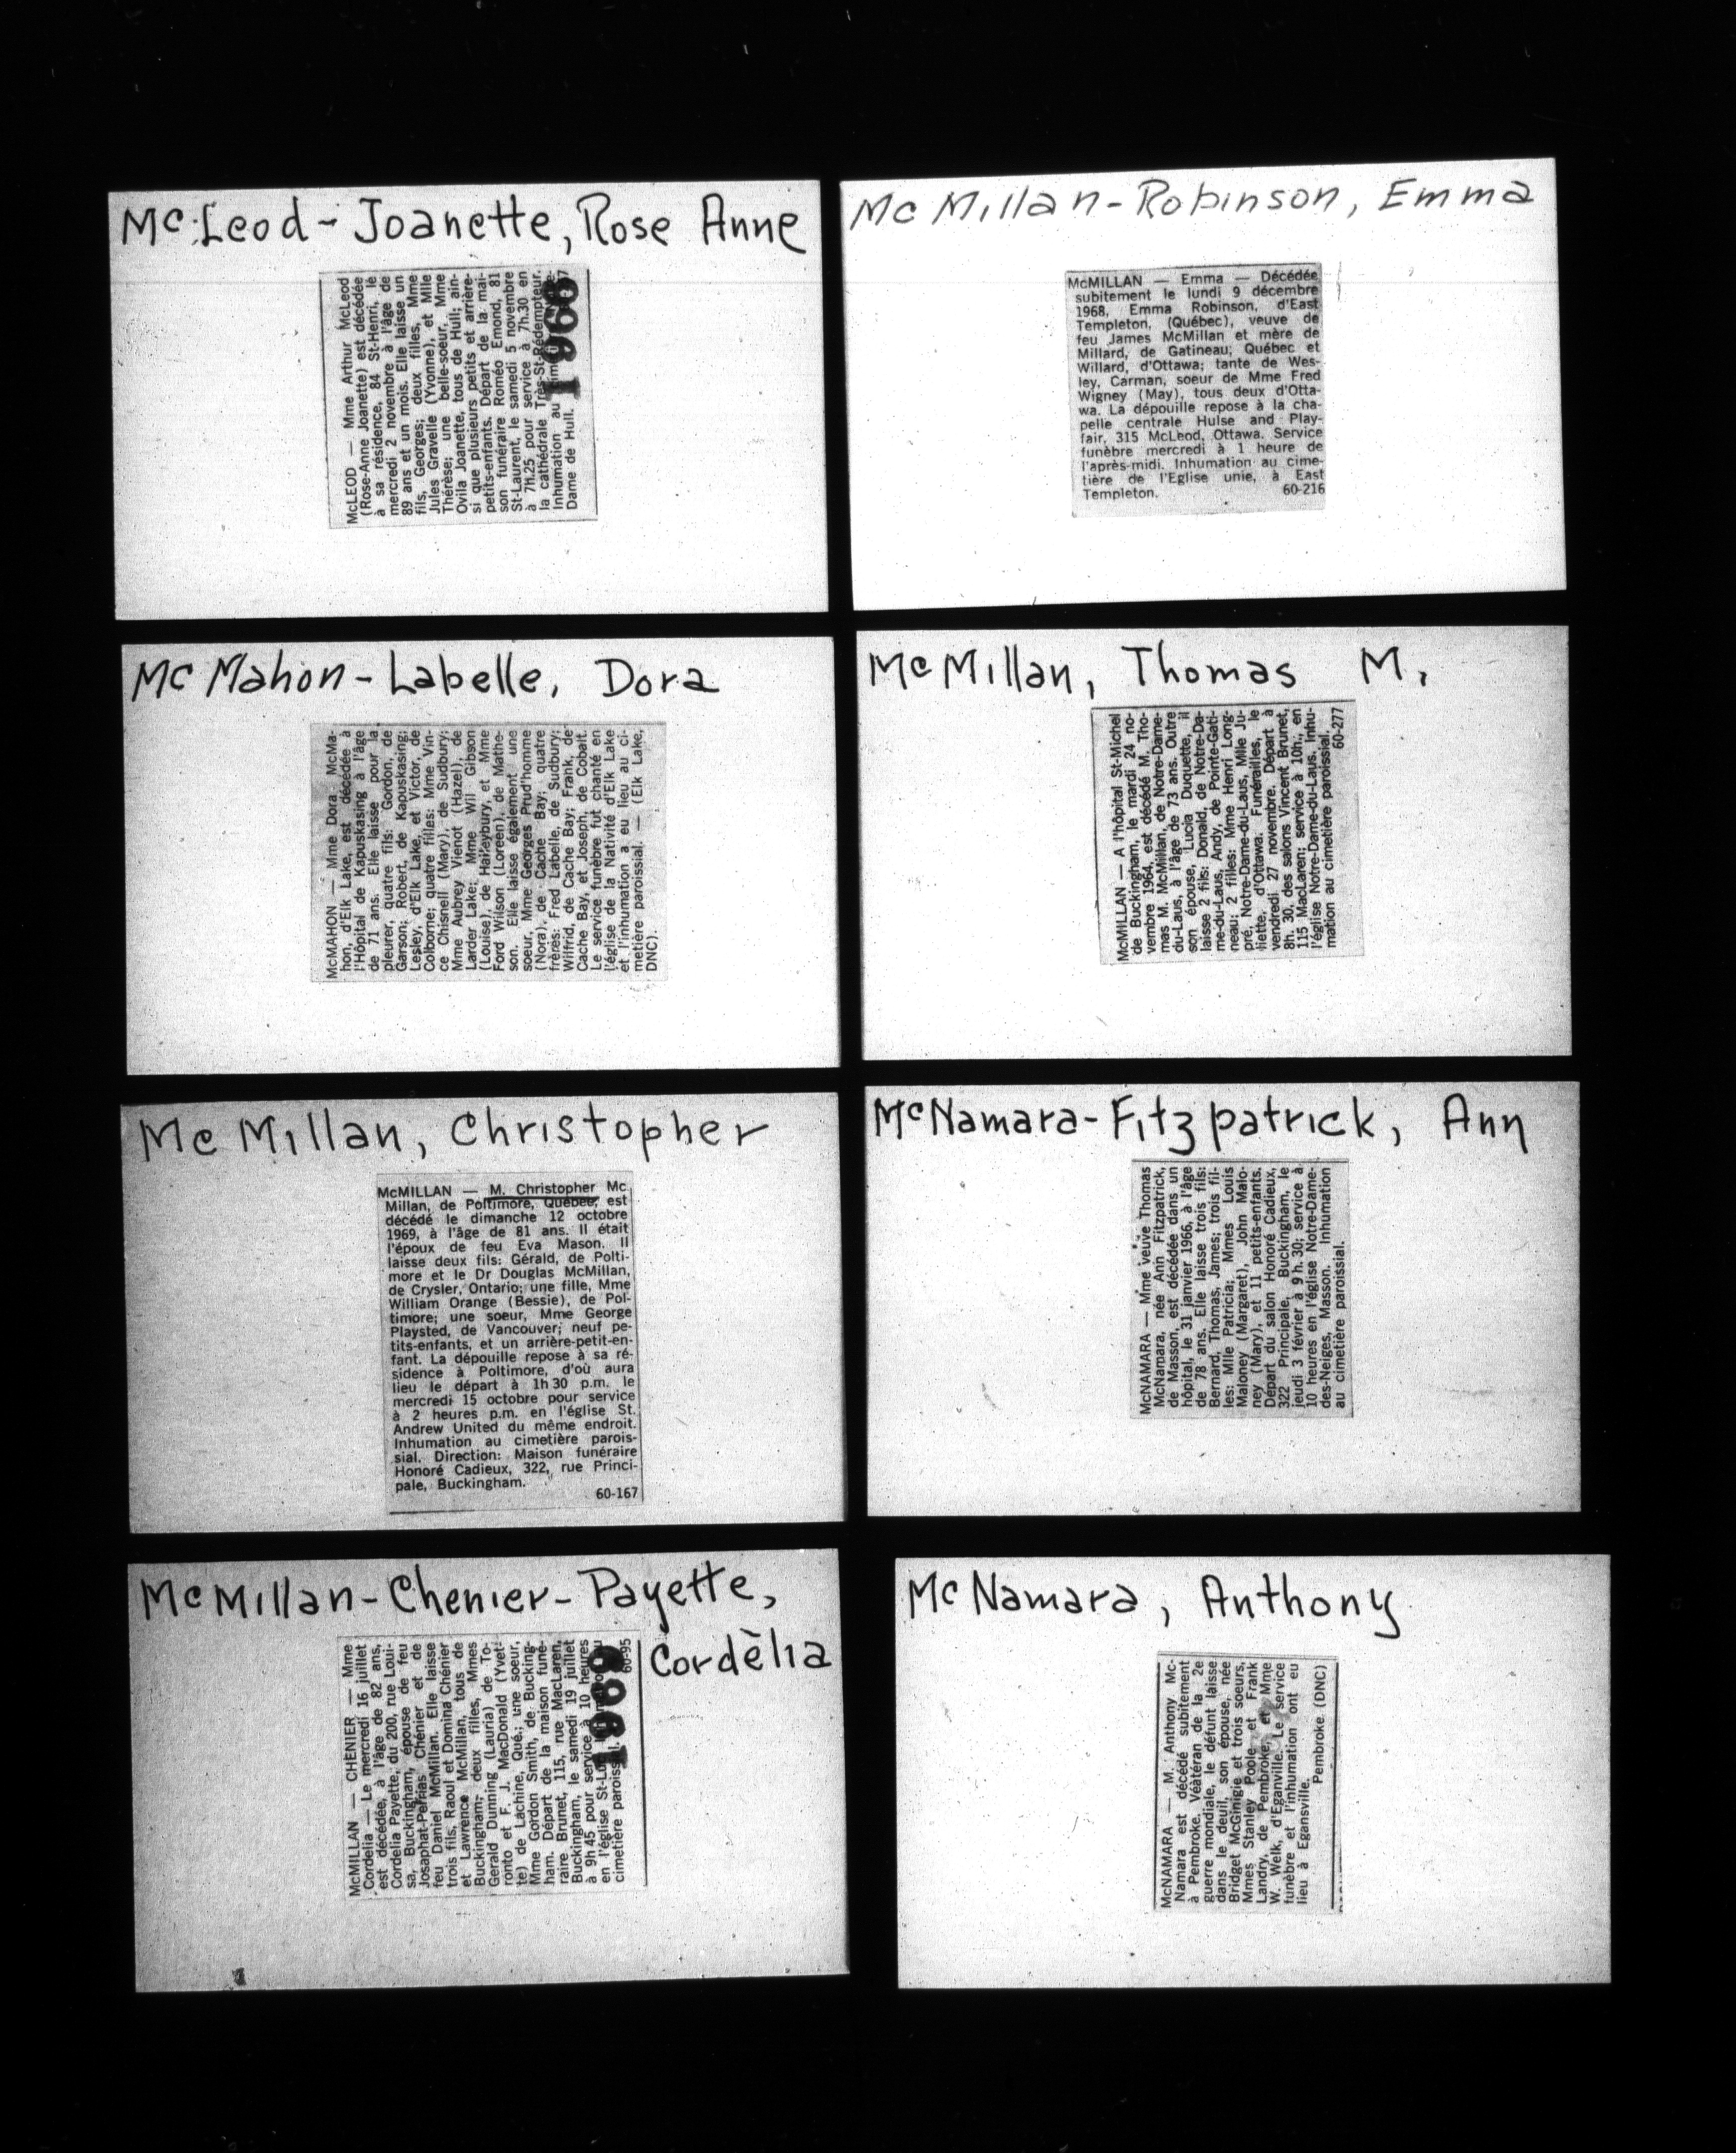 Mc Leod - Joanette, Rose Anne
McLEOD — Mme Arthur McLeod
(Rose-Anne Joanette) est décédée
à sa résidence, 84 St-Henri, le
mercredi 2 novembre à l'âge de
89 ans et un mois. Elle laisse un
fils, Georges; deux filles, Mme
Jules Gravelle (Yvonne), et Mlle
Thérèse; une belle-soeur, Mme
Ovila Joanette, tous de Hull; ain-
si que plusieurs petits et arrière-
petits-enfants. Départ de la mai-
son funéraire Roméo Emond, 81
St-Laurent, le samedi 5 novembre
à 7h.25 pour service à 7h.30 en
la cathédrale Très-St-Rédempteur.
Inhumation au
Dame de Hull.
Mc Mahon - Labelle, Dora
McMAHON — Mme Dora McMa-
hon, d'Elk Lake, est décédée à
l'Hôpital de Kapuskasing à l'âge
de 71 ans. Elle laisse pour la
pleurer, quatre fils: Gordon, de
Garson; Robert, de Kapuskasing;
Lesley, d'Elk Lake, et Victor, de
Colborne; quatre filles: Mme Vin-
ce Chisnell (Mary), de Sudbury;
Mme Aubrey Vienot (Hazel), de
Larder Lake; Mme Wil Gibson
(Louise), de Haileybury, et Mme
Ford Wilson (Loren), de Mathe-
son. Elle laisse également une
soeur, Mme Georges Prud'homme
(Nora), de Cache Bay; quatre
frères: Fred Labelle, de Sudbury;
Wilfrid, de Cache Bay; Frank, de
Cache Bay, et Joseph, de Cobalt.
Le service funèbre fut chanté en
l'église de la Nativité d'Elk Lake
et l'inhumation a eu lieu au ci-
metière paroissial. — (Elk Lake,
DNC).
Mc Millan, Christopher
McMILLAN — M. Christopher Mc
Millan, de Poltimore, Québec, est
décédé le dimanche 12 octobre
1969, à l'âge de 81 ans. Il était
l'époux de feu Eva Mason. Il
laisse deux fils: Gérald, de Polti-
more et le Dr Douglas McMillan,
de Crysler, Ontario; une fille, Mme
William Orange (Bessie), de Pol-
timore; une soeur, Mme George
Playsted, de Vancouver; neuf pe-
tits-enfants, et un arrière-petit-en-
fant. La dépouille repose à sa ré-
sidence à Poltimore, d'où aura
lieu le départ à 1h 30 p.m. le
mercredi 15 octobre pour service
à 2 heures p.m. en l'église St.
Andrew United du même endroit.
Inhumation au cimetière parois-
sial. Direction: Maison funéraire
Honoré Cadieux, 322, rue Princi-
pale, Buckingham.
60-167
Mc Millan - Chenier - Payette,
Cordèlia
McMILLAN — CHENIER — Mme
Cordelia — Le mercredi 16 juillet
est décédée, à l'âge de 82 ans,
Cordelia Payette, du 200, rue Loui-
sa, Buckingham, épouse de feu
Josaphat-Perrias Chénier et de
feu Daniel McMillan. Elle laisse
trois fils, Raoul et Domina Chénier
et Lawrence McMillan, tous de
Buckingham; deux filles, Mmes
Gerald Dunning (Lauria) de To-
ronto et F. J. MacDonald (Yvet-
te) de Lachine, Qué.; une soeur,
Mme Gordon Smith, de Bucking-
ham. Départ de la maison funé-
raire Brunet, 115, rue MacLaren,
Buckingham, le samedi 19 juillet
à 9h 45 pour service à 10 heures
en l'église St-Luc
cimetière paroissial.
60-95
1969
Mc Millan - Robinson, Emma
McMILLAN — Emma — Décédée
subitement le lundi 9 décembre
1968, Emma Robinson, d'East
Templeton, (Québec), veuve de
feu James McMillan et mère de
Millard, de Gatineau; Québec et
Willard, d'Ottawa; tante de Wes-
ley, Carman, soeur de Mme Fred
Wigney (May), tous deux d'Otta-
wa. La dépouille repose à la cha-
pelle centrale Hulse and Play-
fair, 315 McLeod, Ottawa. Service
funèbre mercredi à 1 heure de
l'après-midi. Inhumation au cime-
tière de l'Eglise unie, à East
Templeton. 60-216
Mc Millan, Thomas M.
McMILLAN — A l'hôpital St-Michel
de Buckingham, le mardi 24 no-
vembre 1964, est décédé M. Tho-
mas M. McMillan, de Notre-Dame-
du-Laus, à l'âge de 73 ans. Outre
son épouse, Lucila Duquette, il
laisse 2 fils: Donald, de Notre-Da-
me-du-Laus, Andy, de Pointe-Gati-
neau; 2 filles: Mme Henri Long-
pré, Notre-Dame-du-Laus, Mlle Ju-
liette, d'Ottawa. Funérailles, le
vendredi 27 novembre. Départ à
8h. 30, des salons Vincent Brunet,
115 MacLaren; service à 10h., en
l'église Notre-Dame-du-Laus. Inhu-
mation au cimetière paroissial.
60-277
Mc Namara - Fitzpatrick, Ann
McNAMARA — Mme veuve Thomas
McNamara, née Ann Fitzpatrick,
de Masson, est décédée dans un
hôpital, le 31 janvier 1966, à l'âge
de 78 ans. Elle laisse trois fils:
Bernard, Thomas, James; trois fil-
les: Mlle Patricia; Mmes Louis
Maloney (Margaret), John Malo-
ney (Mary), et 11 petits-enfants.
Départ du salon Honoré Cadieux,
322 Principale, Buckingham, le
jeudi 3 février à 9 h. 30; service à
10 heures en l'église Notre-Dame-
des-Neiges, Masson. Inhumation
au cimetière paroissial.
Mc Namara, Anthony
McNAMARA — M. Anthony Mc-
Namara est décédé subitement
à Pembroke. Vétéran de la 2e
guerre mondiale, le défunt laisse
dans le deuil, son épouse, née
Bridget McGinigie et trois soeurs,
Mmes Stanley Poole et Frank
Landry, de Pembroke, et Mme
W. Welk, d'Eganville. Le service
funèbre et l'inhumation ont eu
lieu à Eganville.
Pembroke. (DNC)